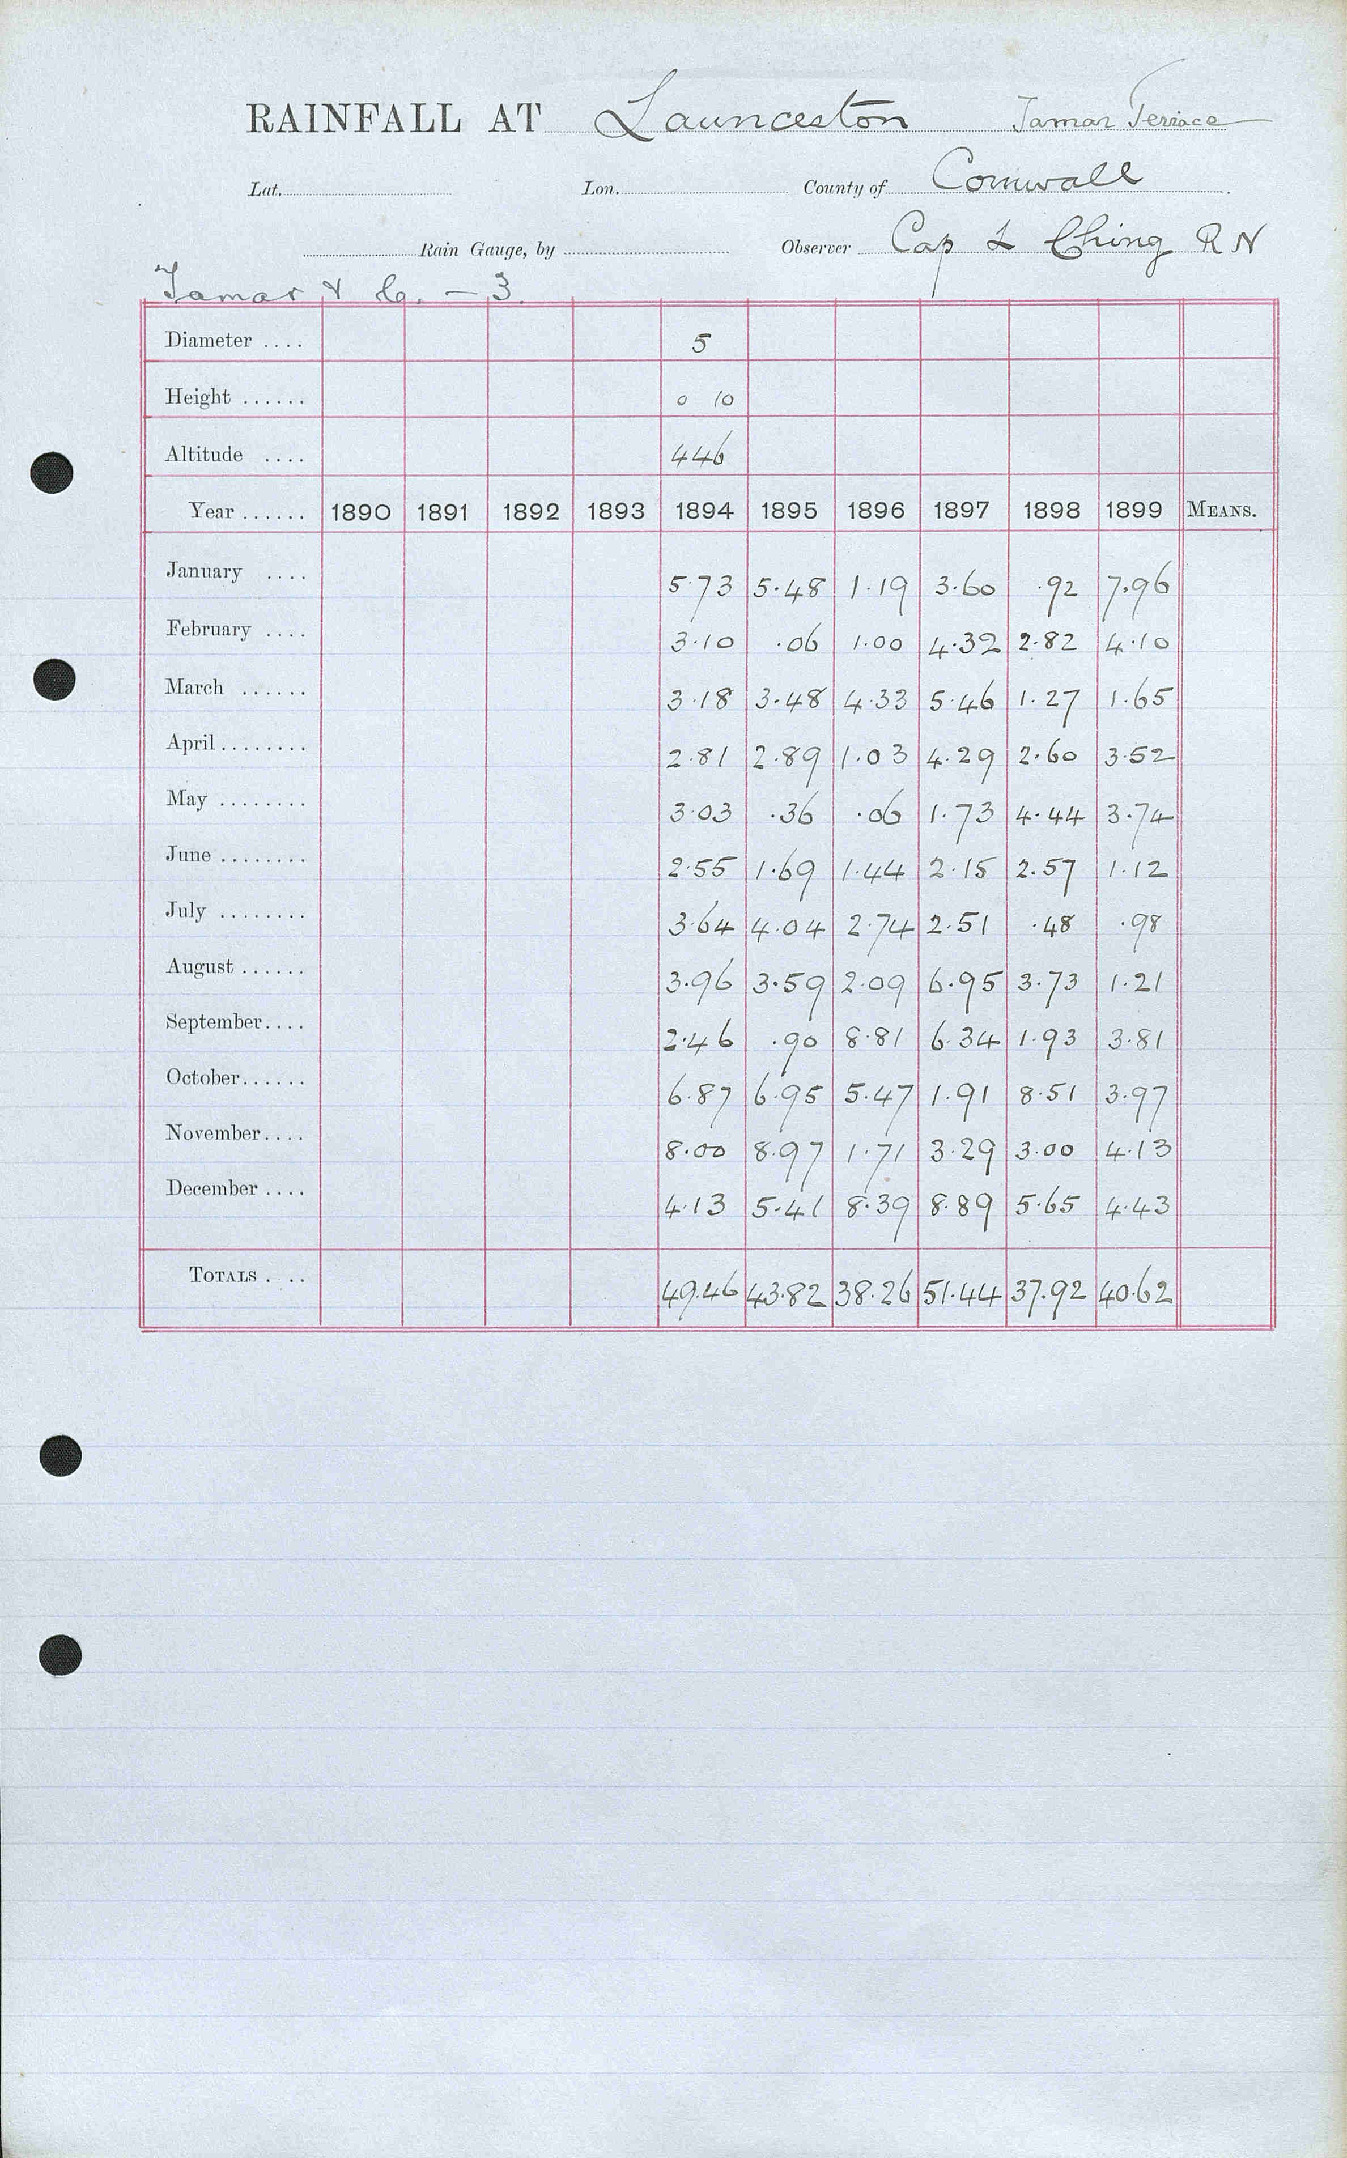 RAINFALL AT Launceston Tamar Terrace
Lat. Lon. County of Cornwall
Rain Gauge, by Observer Cap L Ching R N
Tamar & Co. - 3
Diameter .... 5
Height ...... 0 10
Altitude .... 446
Year ...... 1890 1891 1892 1893 1894 1895 1896 1897 1898 1899 MEANS.
January .... 5.73 5.48 1.19 3.60 .92 7.96
February .... 3.10 .06 1.00 4.32 2.82 4.10
March ...... 3.18 3.48 4.33 5.46 1.27 1.65
April ........ 2.81 2.89 1.03 4.29 2.60 3.52
May ........ 3.03 .36 .06 1.73 4.44 3.74
June ........ 2.55 1.69 1.44 2.15 2.57 1.12
July ........ 3.64 4.04 2.74 2.51 .48 .98
August ...... 3.96 3.59 2.09 6.95 3.73 1.21
September.... 2.46 .90 8.81 6.34 1.93 3.81
October...... 6.87 6.95 5.47 1.91 8.51 3.97
November.... 8.00 8.97 1.71 3.29 3.00 4.13
December .... 4.13 5.41 8.39 8.89 5.65 4.43
TOTALS . .. 49.46 43.82 38.26 51.44 37.92 40.62